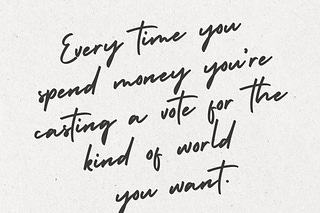 Every time you
spend money you're
casting a vote for the
kind of world
you want.